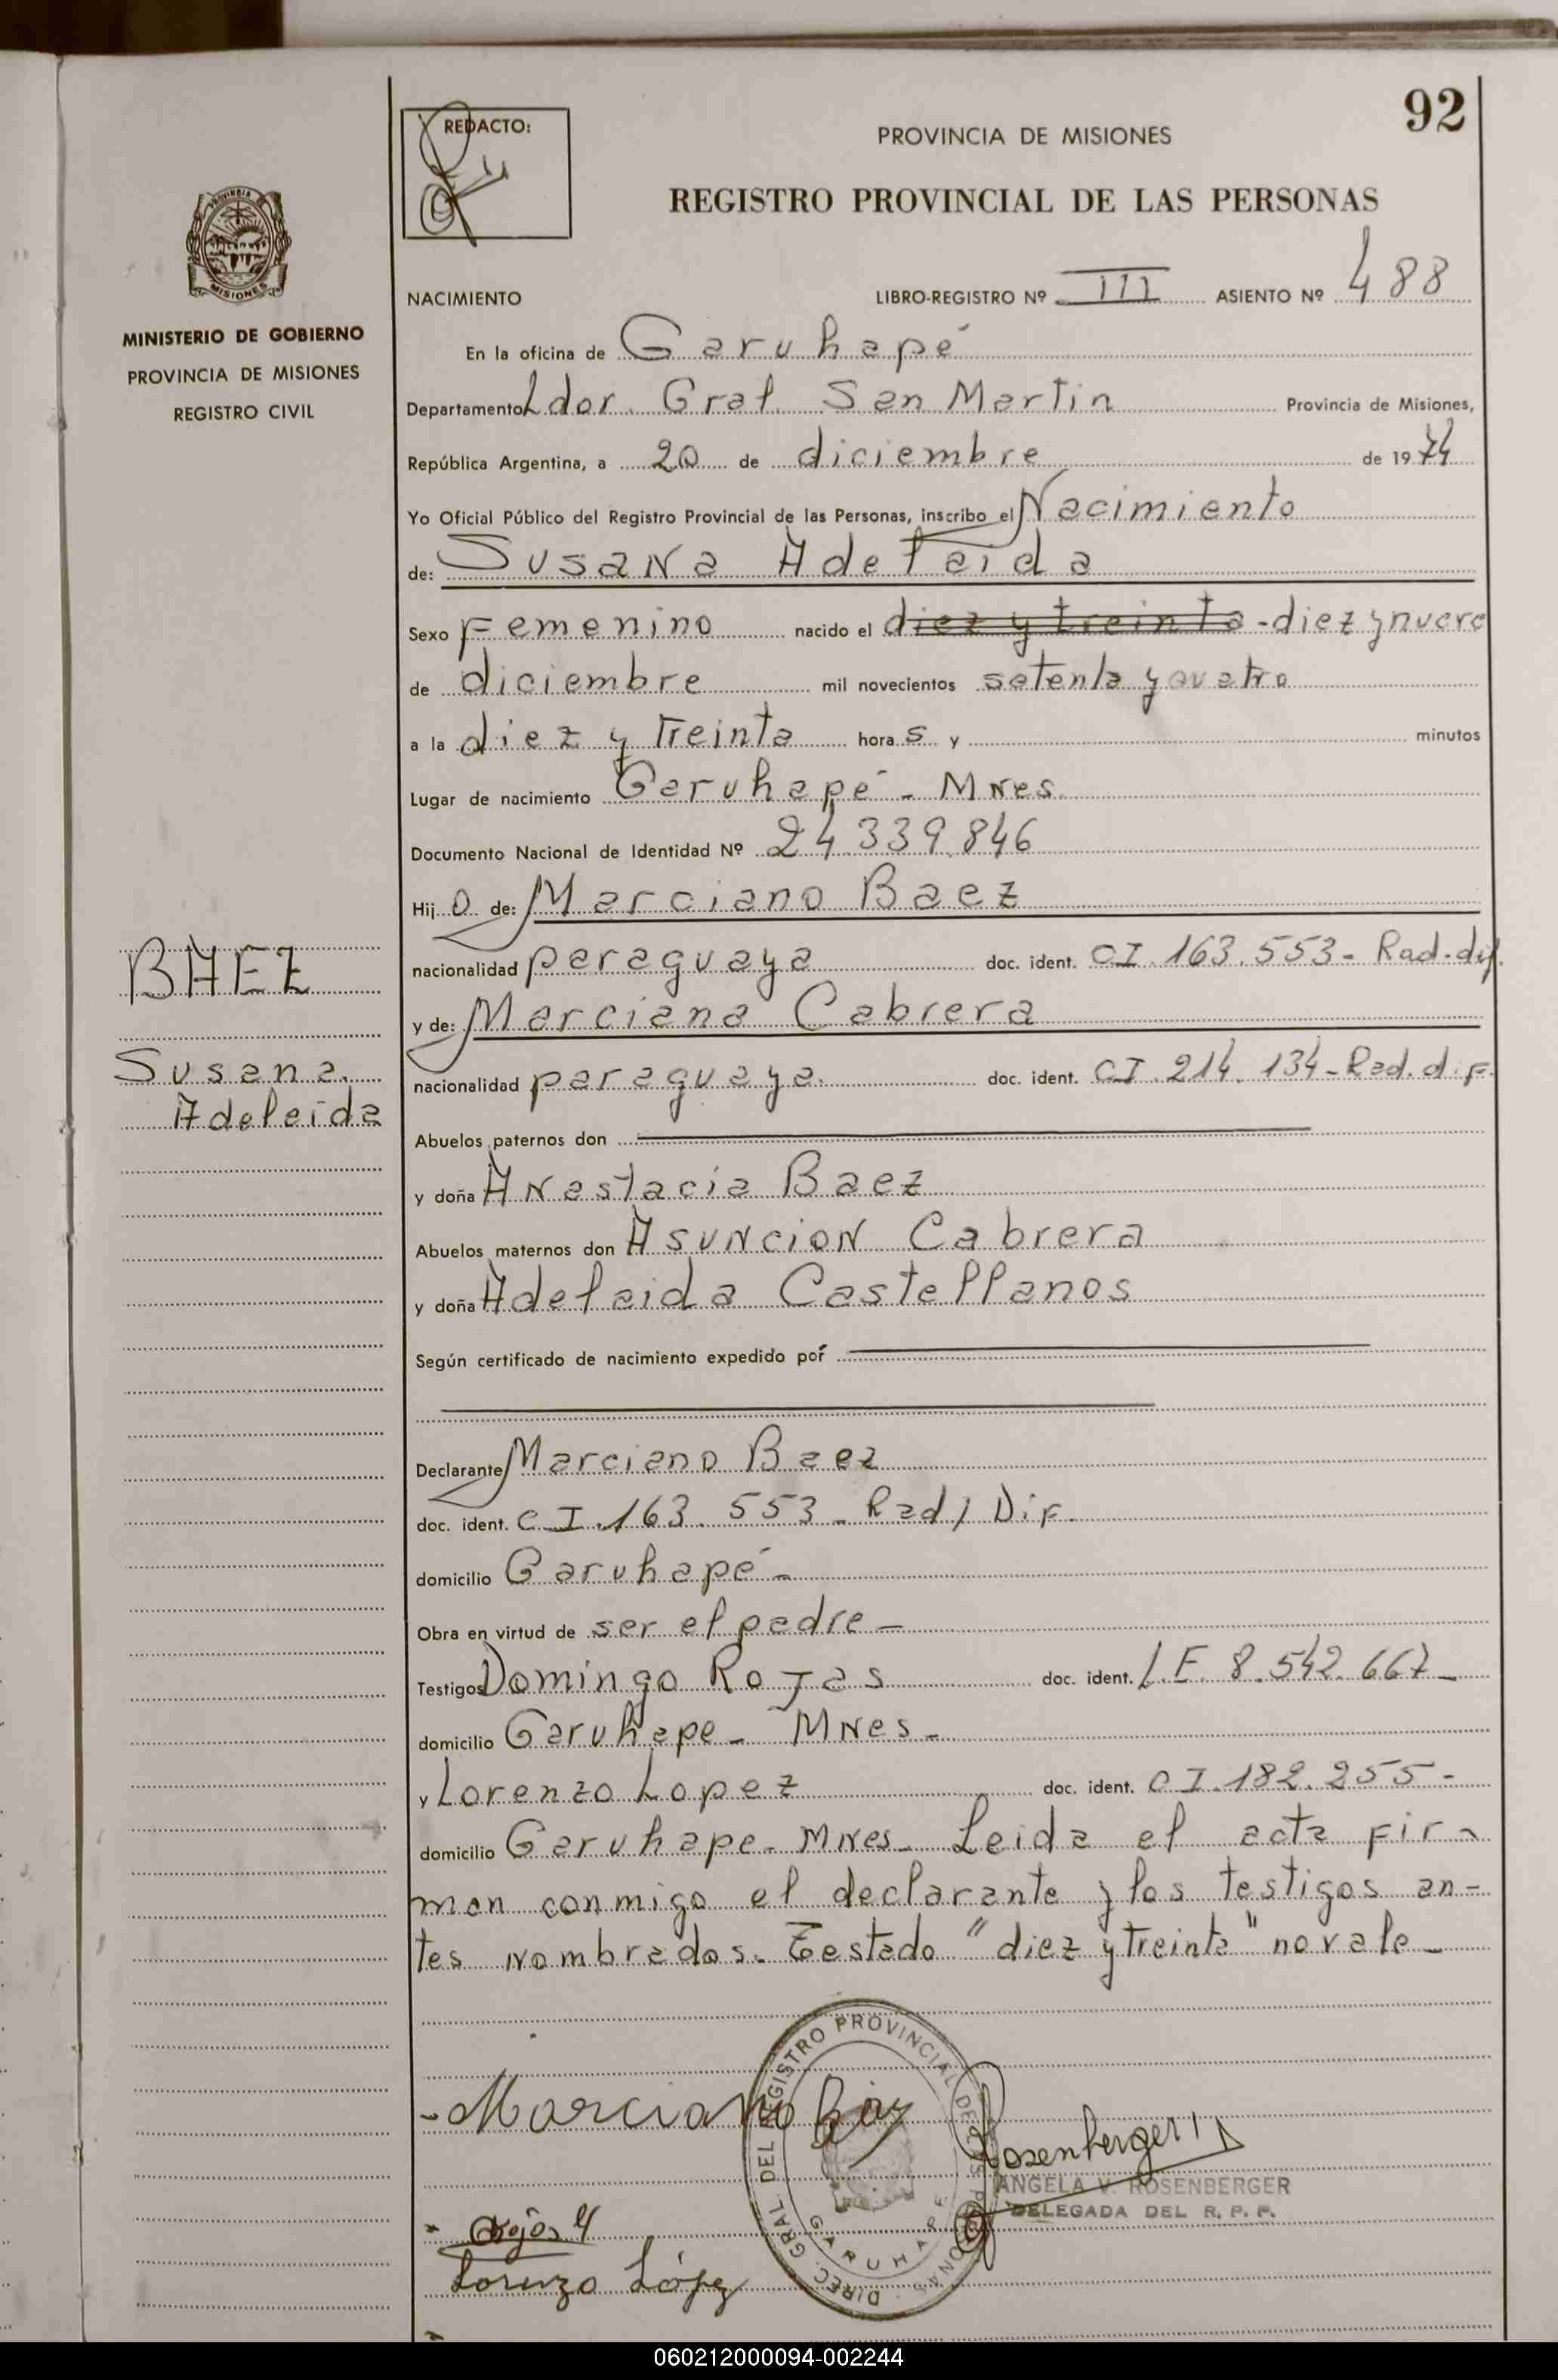 92
REDACTO:
PROVINCIA DE MISIONES
REGISTRO PROVINCIAL DE LAS PERSONAS
PROVINCIA
MISIONES
MINISTERIO DE GOBIERNO
PROVINCIA DE MISIONES
REGISTRO CIVIL
NACIMIENTO LIBRO-REGISTRO Nº III ASIENTO Nº 488
En la oficina de Garuhapé
Departamento Ldor. Gral. San Martin Provincia de Misiones,
República Argentina, a 20 de diciembre de 1974
Yo Oficial Público del Registro Provincial de las Personas, inscribo el Nacimiento
de: Susana Adelaida
Sexo Femenino nacido el diez y treinta - diez y nueve
de diciembre mil novecientos setenta y cuatro
a la diez y Treinta hora s y minutos
Lugar de nacimiento Garuhapé - Mnes.
Documento Nacional de Identidad Nº 24.339.846
Hij o de: Marciano Baez
nacionalidad paraguaya doc. ident. CI. 163.553 - Rad. dif.
y de: Marciana Cabrera
nacionalidad paraguaya. doc. ident. CI. 214.134 - Rad. d.F.
BAEZ
Susana.
Adelaida
Abuelos paternos don
y doña Anastacia Baez
Abuelos maternos don Asuncion Cabrera
y doña Adelaida Castellanos
Según certificado de nacimiento expedido por
Declarante Marciano Baez
doc. ident. C.I. 163.553 - Rad/ Dif.
domicilio Garuhapé -
Obra en virtud de ser el padre -
Testigos Domingo Rojas doc. ident. L.E. 8.542.667 -
domicilio Garuhape - Mnes -
y Lorenzo Lopez doc. ident. CI. 182.255 -
domicilio Garuhape - Mnes - Leida el acta fir-
man conmigo el declarante y los testigos an-
tes nombrados. Testado "diez y treinta" no vale -
- Marciano Baez
Rosenberger
ANGELA V. ROSENBERGER
DELEGADA DEL R. P. P.
DIREC. GRAL. DEL REGISTRO PROVINCIAL DE LAS PERSONAS
GARUHAPE
Lorenzo López
060212000094-002244